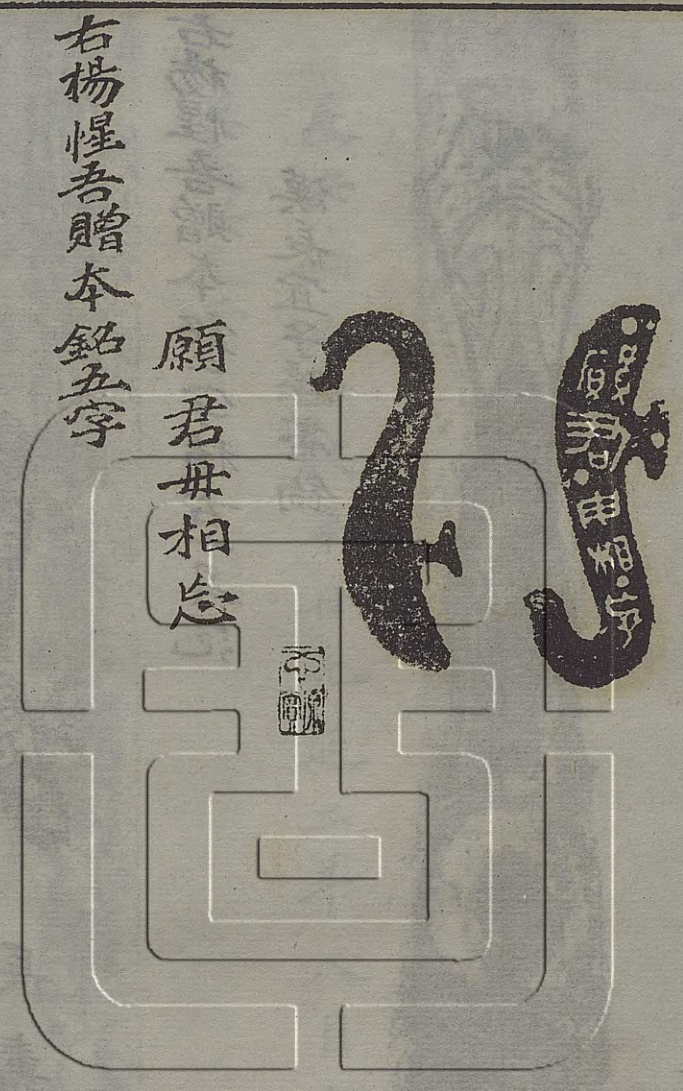 願君毋相忘
願君毋相忘
右楊惺吾贈本銘五字